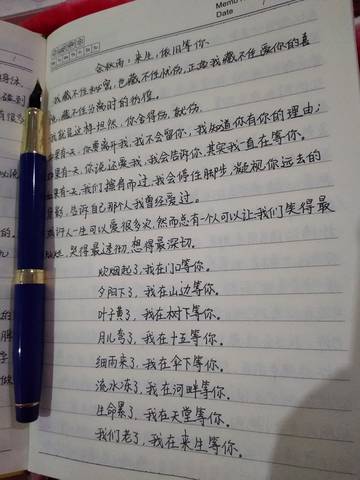 Memo No.
Date
余秋雨：来生，依旧等你.
我藏不住秘密，也藏不住忧伤，正如我藏不住爱你的喜
悦，藏不住分离时的彷徨。
我就是这样坦然，你舍得伤，就伤.
如果有一天，你要离开我，我不会留你，我知道你有你的理由；
如果有一天，你说还爱我，我会告诉你，其实我一直在等你.
如果有一天，我们擦肩而过，我会停住脚步，凝视你远去的
背影，告诉自己那个人我曾经爱过.
或许人一生可以爱很多次，然而总有一个人可以让我们笑得最
灿烂，哭得最透彻，想得最深切.
炊烟起了，我在门口等你。
夕阳下了，我在山边等你.
叶子黄了，我在树下等你.
月儿弯了，我在十五等你.
细雨来了，我在伞下等你.
流水冻了，我在河畔等你.
生命累了，我在天堂等你.
我们老了，我在来生等你.